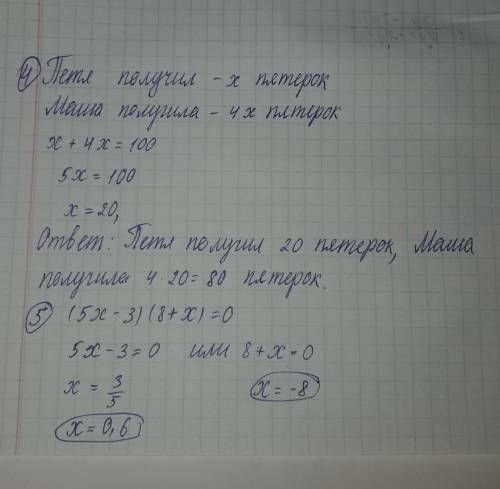 ④ Петя получил - x пятерок
Маша получила - 4x пятерок
x + 4x = 100
5x = 100
x = 20,
Ответ: Петя получил 20 пятерок, Маша
получила 4 · 20 = 80 пятерок.
⑤ (5x - 3)(8 + x) = 0
5x - 3 = 0 или 8 + x = 0
x = 3/5 x = -8
x = 0,6